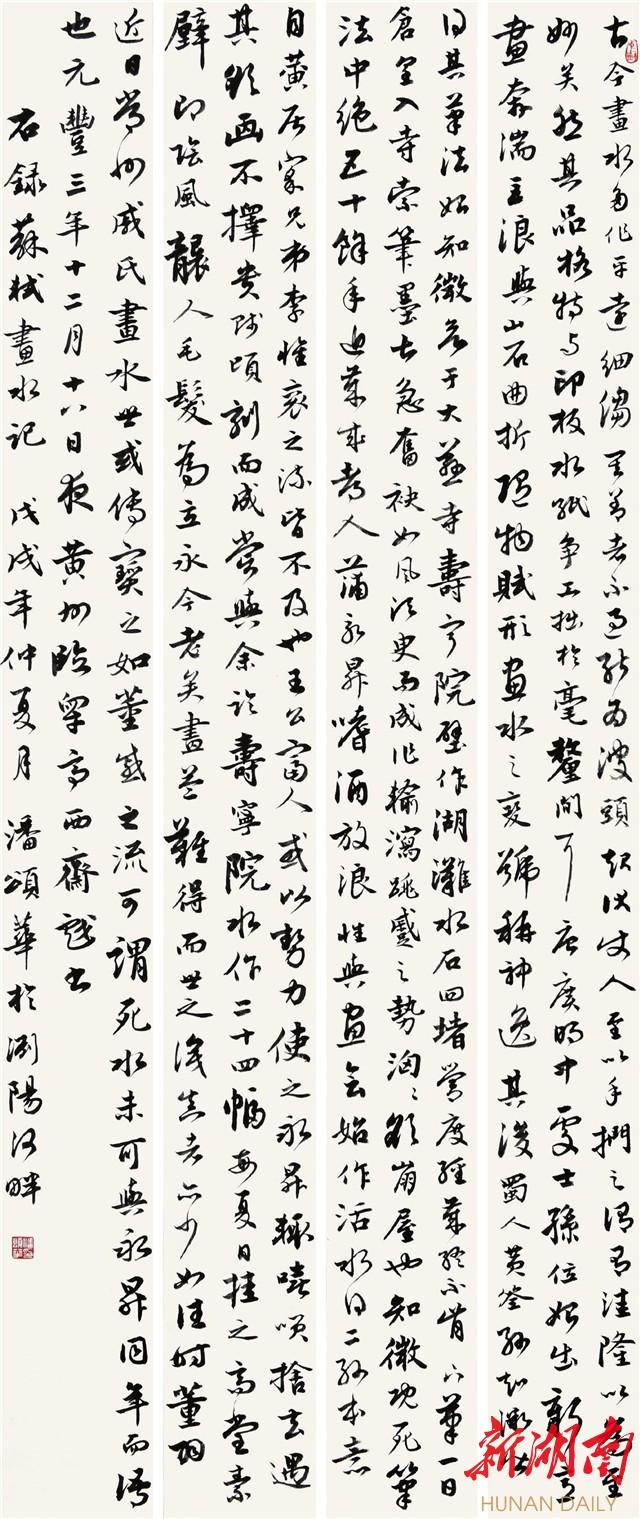 古今畫水多作平遠細皺其善者不過能為波頭起伏使人至以手捫之謂有窪隆以為至
妙矣然其品格特与印板水紙争工拙於毫釐間耳唐廣明中處士孫位始出新意
畫奔湍巨浪與山石曲折隨物賦形畫水之變號稱神逸其後蜀人黄筌孫知微皆
得其筆法始知微欲于大慈寺壽寧院壁作湖灘水石四堵營度經歲終不肯下筆一日
倉皇入寺索筆墨甚急奮袂如風須臾而成作輸瀉跳蹙之勢洶洶欲崩屋也知微既死筆
法中絶五十餘年近歲成都人蒲永昇嗜酒放浪性與畫會始作活水得二孫本意
自黄居寀兄弟李懷衮之流皆不及也王公富人或以勢力使之永昇輒嘻笑捨去遇
其欲画不擇贵賤頃刻而成嘗與余臨壽寧院水作二十四幅每夏日挂之高堂素
壁即陰風襲人毛髮為立永今老矣畫益難得而世之識真者亦少如往時董羽
近日常州戚氏畫水世或傳寶之如董戚之流可謂死水未可與永昇同年而語
也元豐三年十二月十八日夜黄州臨皋亭西齋戲書
右録蘇軾畫水记 戊戌年仲夏月 潘頌華於浏陽河畔
新湖南
HUNAN DAILY